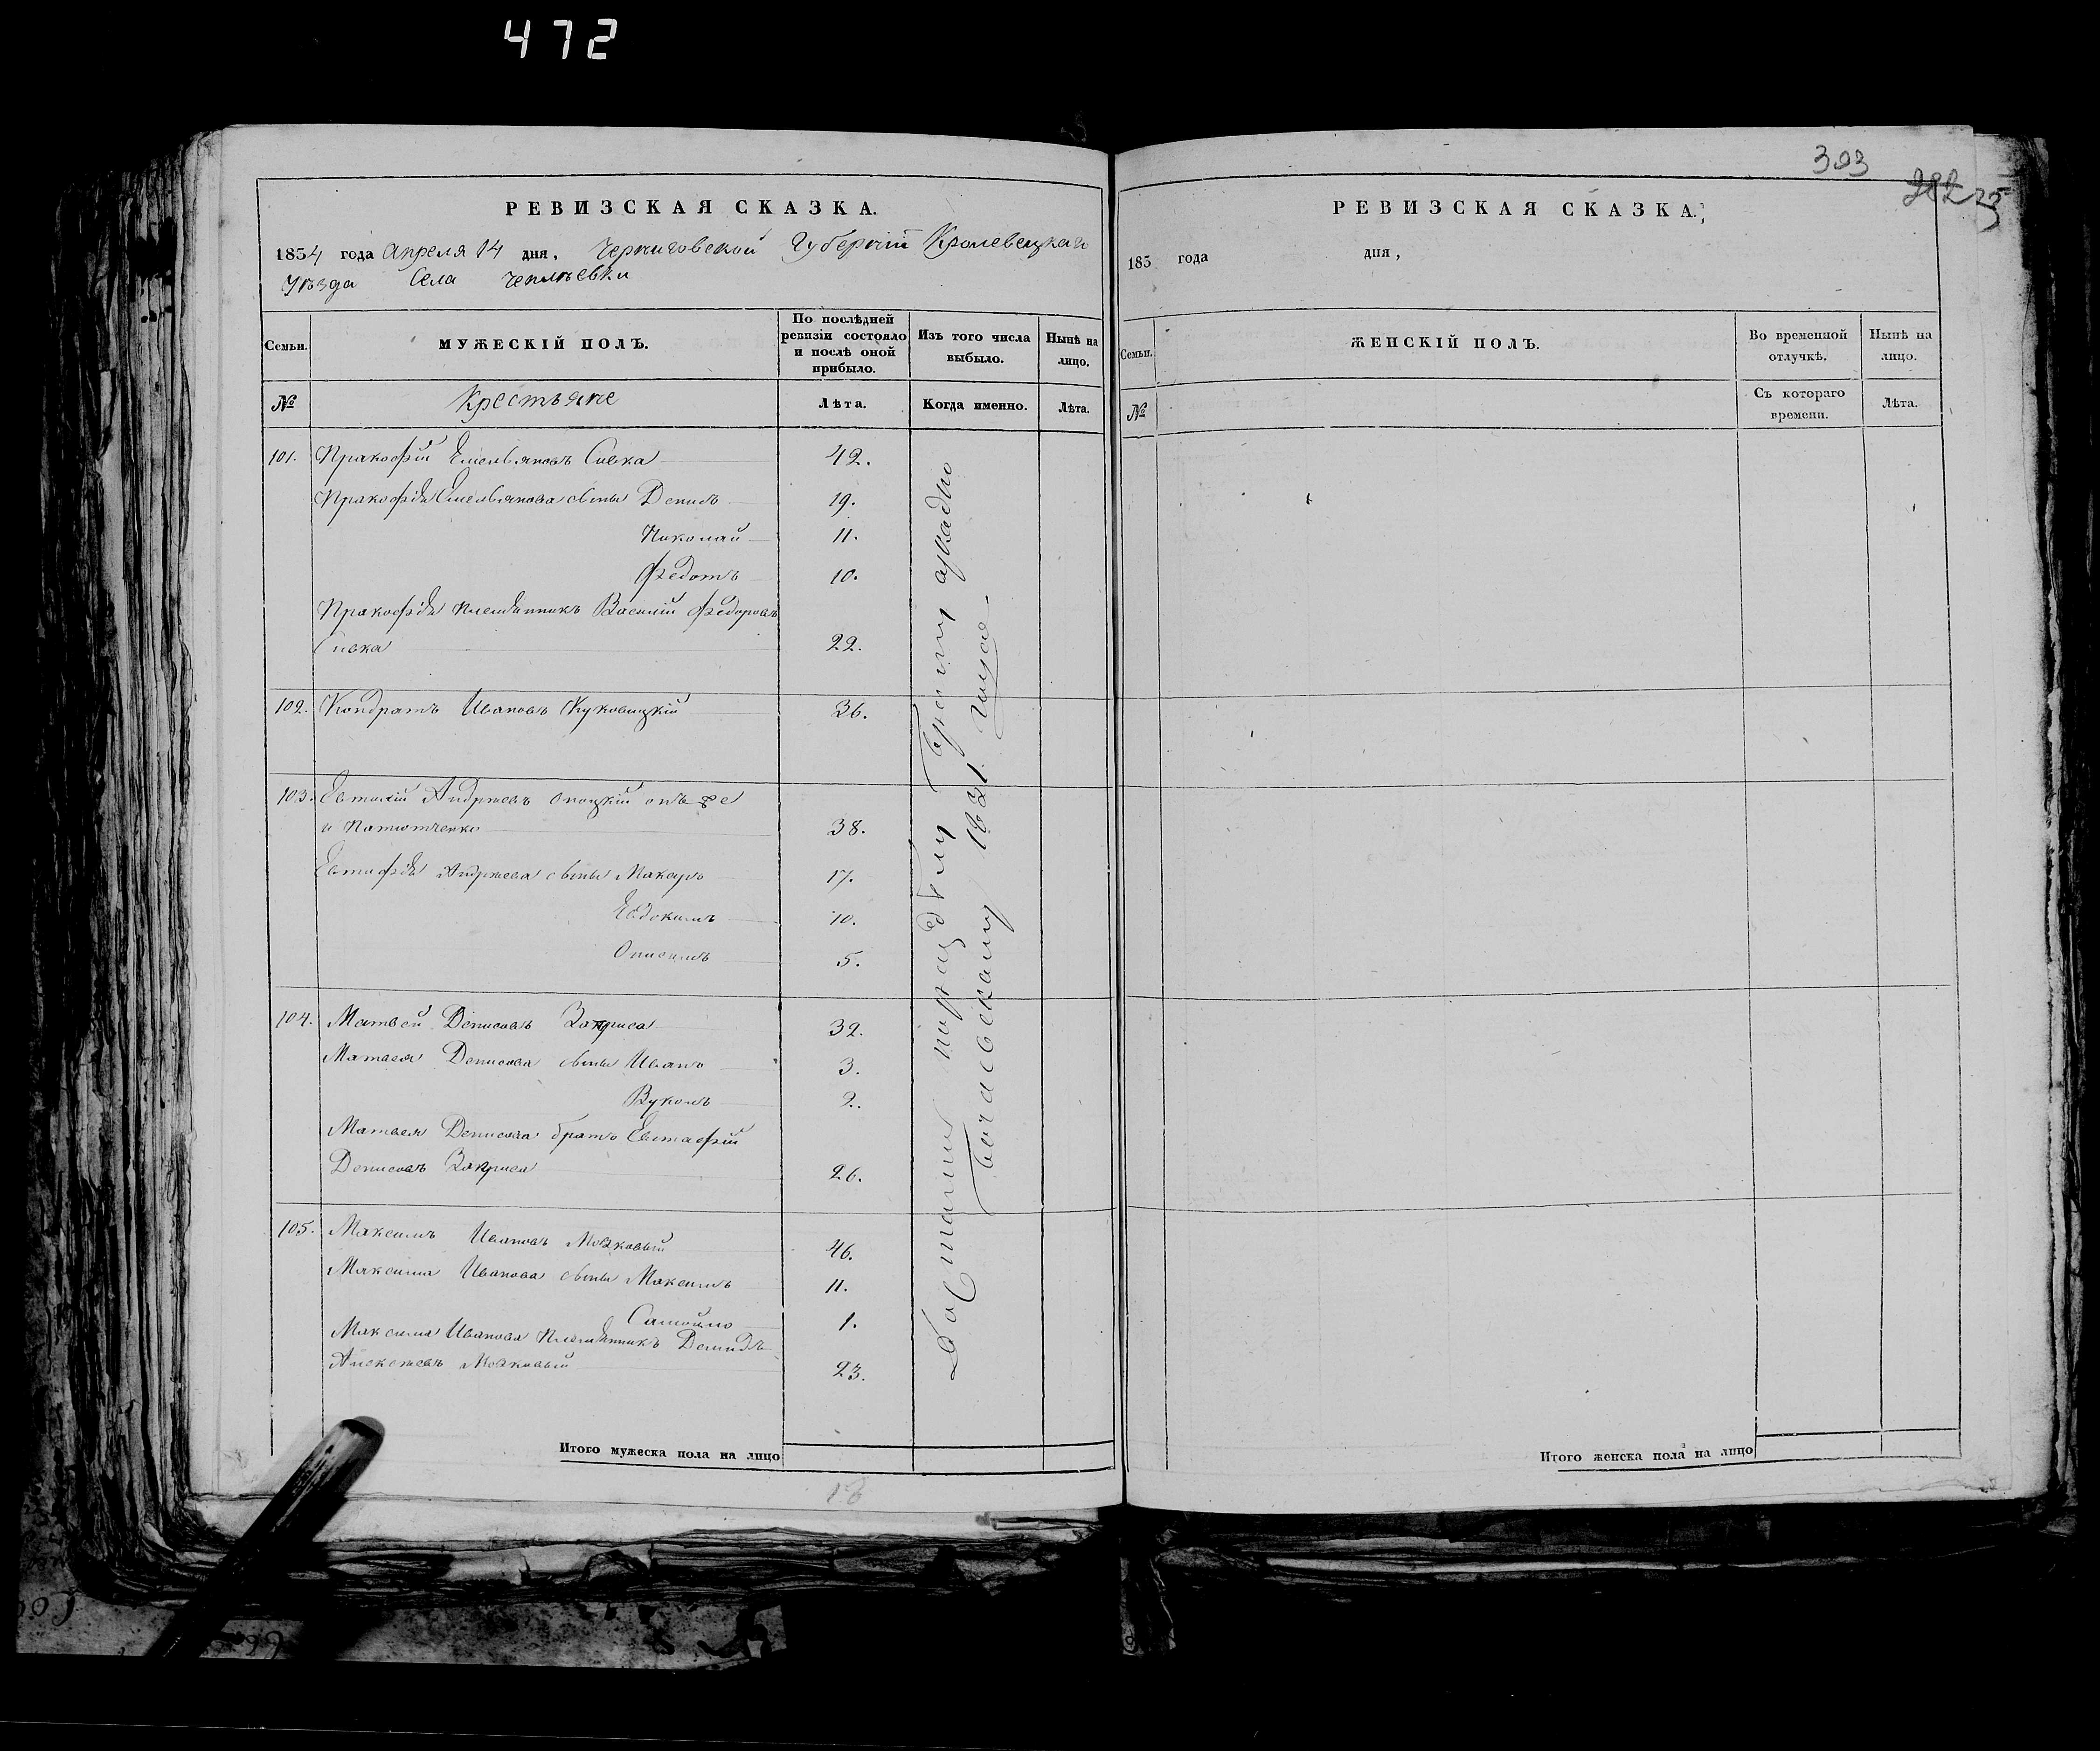 472
303
282 25
РЕВИЗСКАЯ СКАЗКА.
1854 года Апреля 14 дня, Черниговской Губернiи Кролевецкаго
Уѣзда Села Чеплѣевки
Семьи.
МУЖЕСКІЙ ПОЛЪ.
По послѣдней ревизіи состояло и послѣ оной прибыло.
Изъ того числа выбыло.
Нынѣ на лицо.
№
Крестьяне
Лѣта.
Когда именно.
Лѣта.
101. Пракофій Емельяновъ Сивка 42.
Пракофія Емельянова сыны Денисъ 19.
Николай 11.
Федотъ 10.
Пракофія племянникъ Василій Федоровъ
Сивка 22.
102. Кондратъ Ивановъ Жуковицкій 36.
103. Андреевъ онъ же
и 38.
Андреева сыны Макаръ 17.
Евдокимъ 10.
Онисимъ 5.
104. Матвей Денисовъ Закриса 32.
Матвея Денисова сыны Иванъ 3.
Вуколъ 2.
Матвея Денисова братъ Евстафій
Денисовъ Закриса 26.
105. Максимъ Ивановъ Мозковый 46.
Максима Иванова сыны Максимъ 11.
Самойло 1.
Максима Иванова племянникъ Демидъ
Алексеевъ Мозковый 23.
Достались по раздѣлу
1821
Итого мужеска пола на лицо
18
РЕВИЗСКАЯ СКАЗКА.
185 года дня,
Семьи.
ЖЕНСКІЙ ПОЛЪ.
Во временной отлучкѣ.
Нынѣ на лицо.
№
Съ котораго времени.
Лѣта.
Итого женска пола на лицо